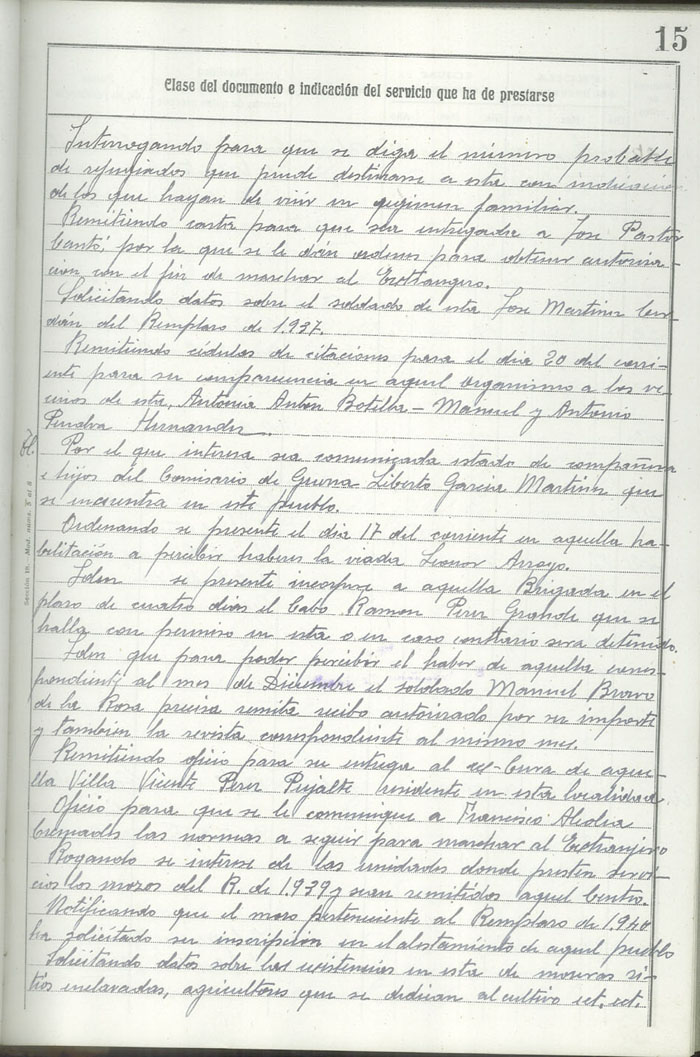 15
Clase del documento e indicación del servicio que ha de prestarse
Interrogando para que se diga el número probable
de refugiados que puede destinarse a esta con indicacion
de los que hayan de vivir en regimen familiar.
Remitiendo carta para que sea entregada a Jose Pastor
Cantó, por la que se le dán ordenes para obtener autoriza-
cion con el fin de marchar al Extrangero.
Solicitando datos sobre el soldado de esta Jose Martinez Cer-
dán del Remplazo de 1.937.
Remitiendo cédulas de citaciones para el dia 20 del corri-
ente para su comparecencia en aquel organismo a los ve-
cinos de esta, Antonia Anton Botella - Manuel y Antonio
Penalva Hernandez.
Por el que interesa sea comunicada estado de compañera
e hijos del Comisario de Guerra Liberto Garcia Martinez que
se encuentra en este pueblo.
Ordenando se presente el dia 17 del corriente en aquella ha-
bilitación a percibir haberes la viuda Leonor Arroyo.
Iden se presente incorpore a aquella Brigada en el
plazo de cuatro dias el Cabo Ramon Perez Grande que se
halla con permiso en esta o en caso contrario sera detenido.
Iden que para poder percibir el haber de aquella corres-
pondiente al mes de Diciembre el soldado Manuel Bravo
de la Rosa precisa remita recibo autorizado por su importe
y tambien la revista correspondiente al mismo mes.
Remitiendo oficio para su entrega al ex-Cura de aque-
lla Villa Vicente Perez Pujalte residente en esta localidad.
Oficio para que se le comunique a Francisco Aledia
las normas a seguir para marchar al Extranjero
Rogando se interese de las unidades donde presten servi-
cios los mozos del R. de 1.939 y sean remitidos aquel Centro.
Notificando que el mozo perteneciente al Remplazo de 1.940
ha solicitado su inscripción en el alistamiento de aquel pueblo
Solicitando datos sobre las existencias en esta de moreras si-
tios enclavadas, agricultores que se dedican al cultivo ect. ect.